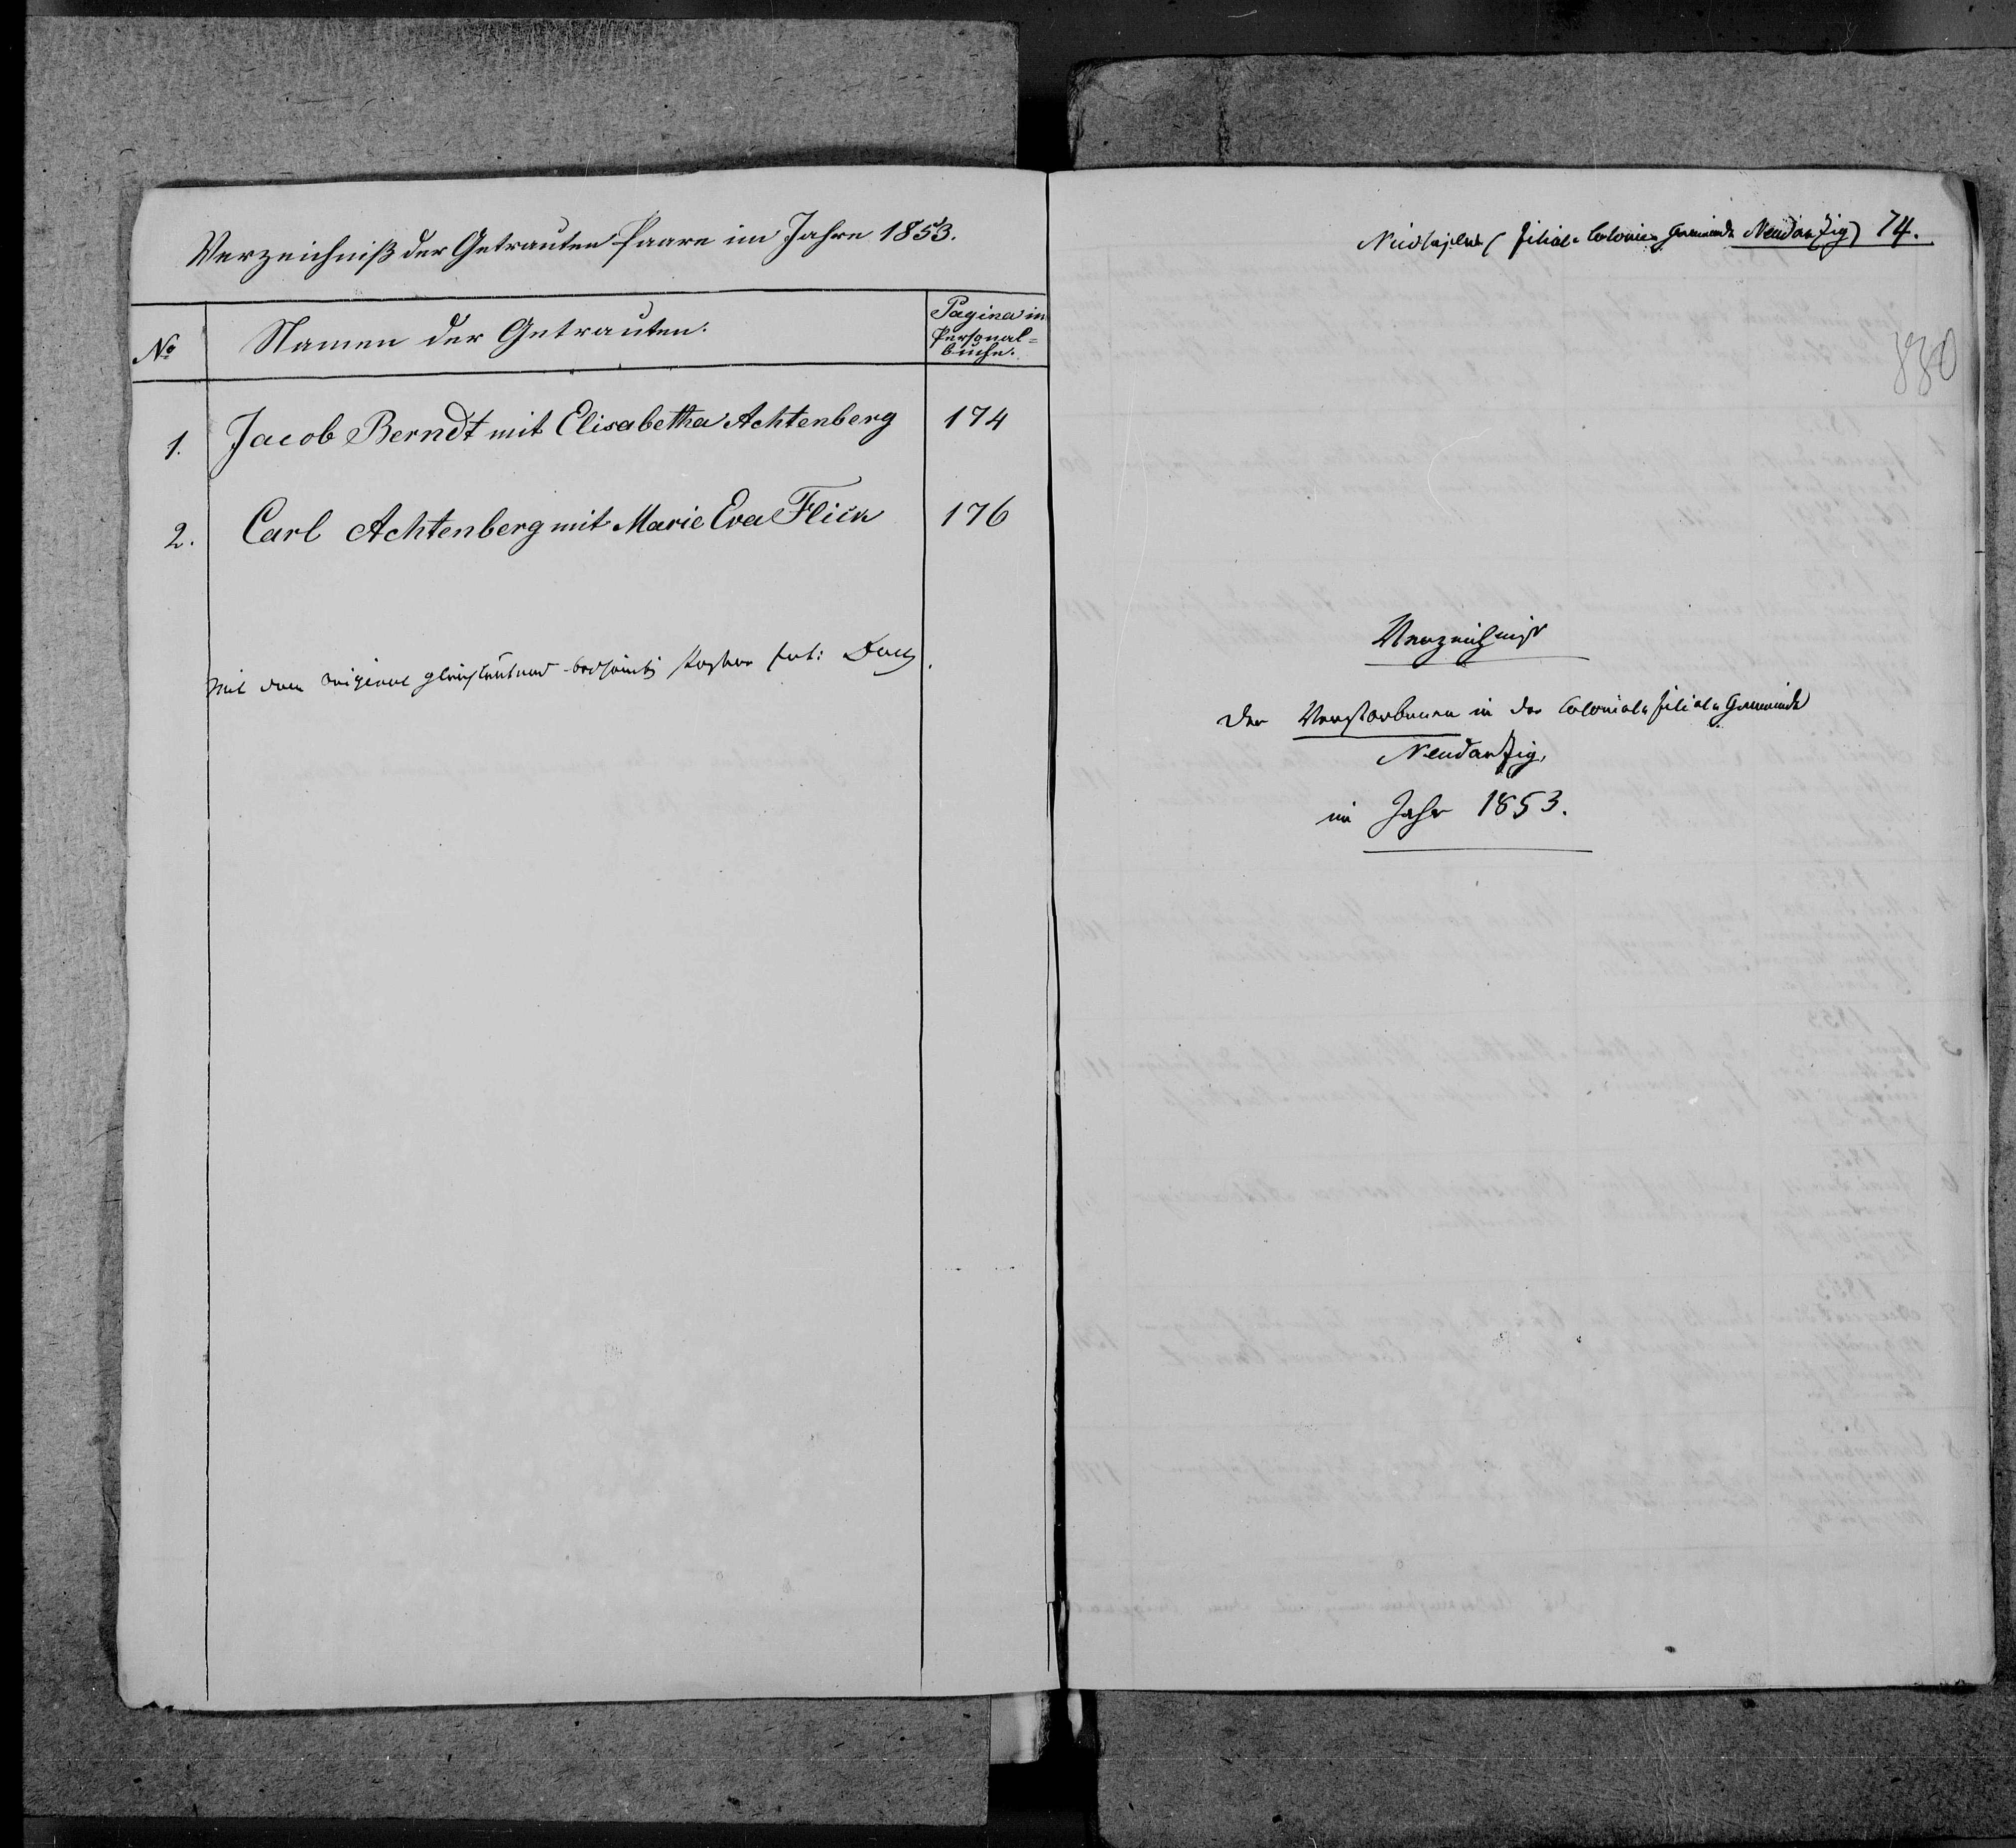 Verzeichniß der Getrauten Paare im Jahre 1853.
No
Namen der Getrauten.
Pagina im
Personal=
buche.
1. Jacob Berndt mit Elisabetha Achtenberg 174
2. Carl Achtenberg mit Marie Eva Flick 176
Mit dem Original gleichlautend Pastor
(Filial-Colonie-Gemeinde Neudanzig) 74.
880
Verzeichniß
der Verstorbenen in der Colonial-Filial-Gemeinde
Neudanzig,
im Jahr 1853.